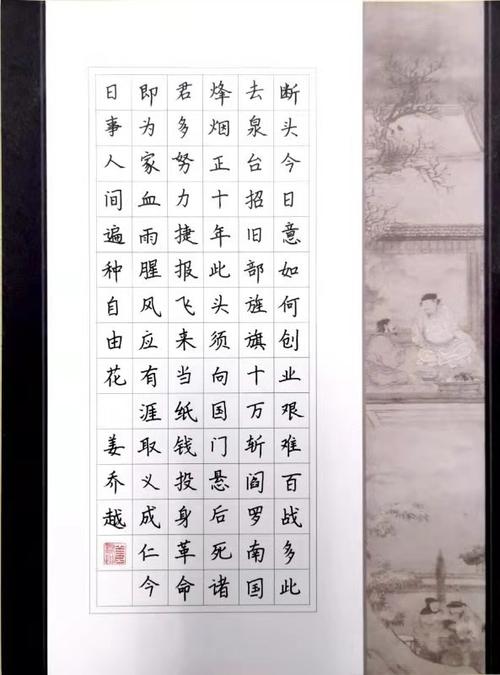 断头今日意如何创业艰难百战多此
去泉台招旧部旌旗十万斩阎罗南国
烽烟正十年此头须向国门悬后死诸
君多努力捷报飞来当纸钱投身革命
即为家血雨腥风应有涯取义成仁今
日事人间遍种自由花 姜乔越